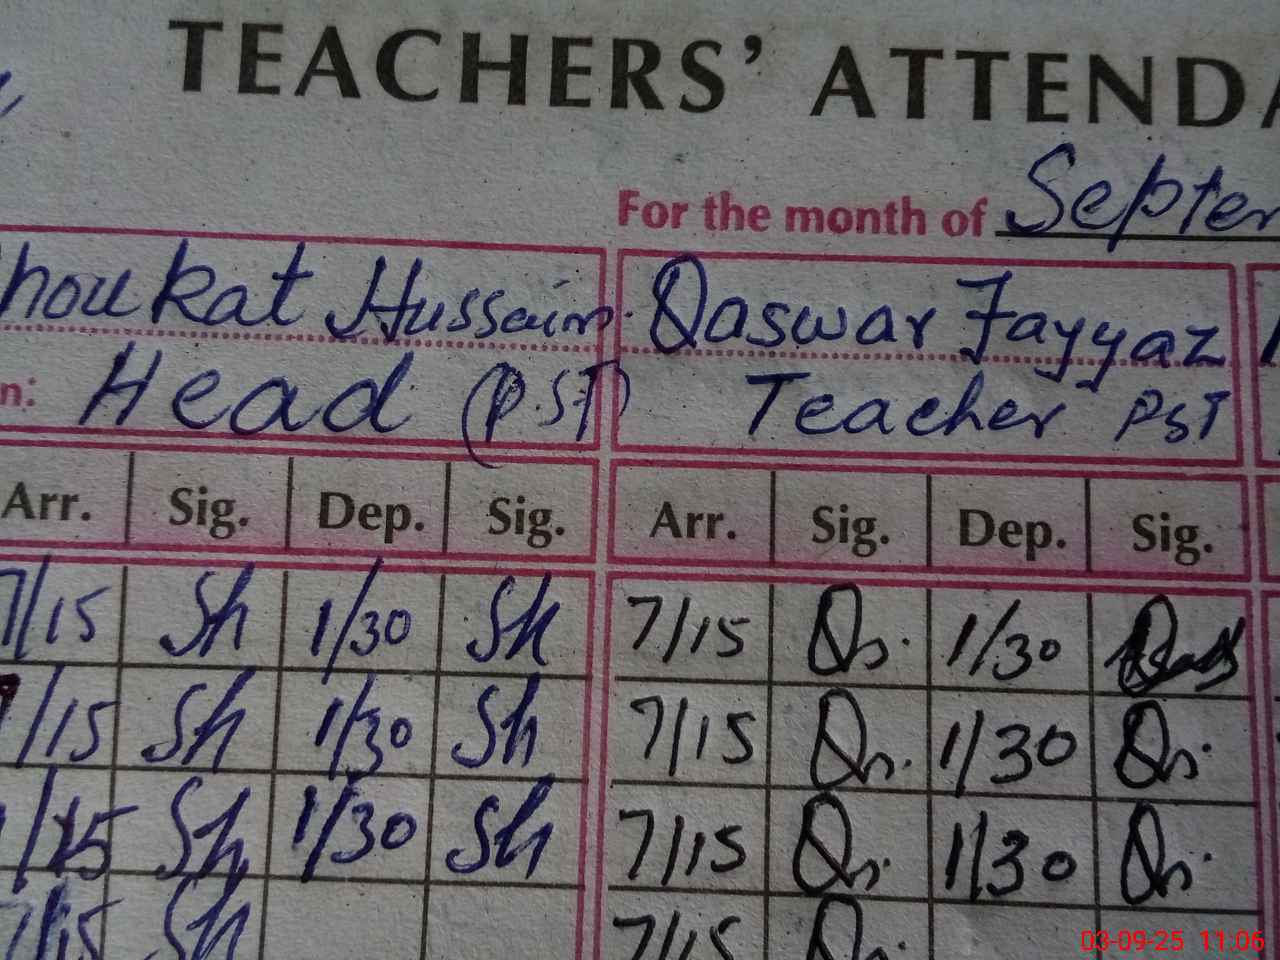 TEACHERS' ATTENDA
For the month of Septem
houkat Hussain. Qaswar Fayyaz
n: Head (P.S.T) Teacher PST
Arr. Sig. Dep. Sig. Arr. Sig. Dep. Sig.
7/15 Sh 1/30 Sh 7/15 Qs. 1/30
7/15 Sh 1/30 Sh 7/15 Qs. 1/30 Qs.
/15 Sh 1/30 Sh 7/15 Qs. 1/30 Qs.
7/15 Sh 7/15 Qs.
03-09-25 11:06